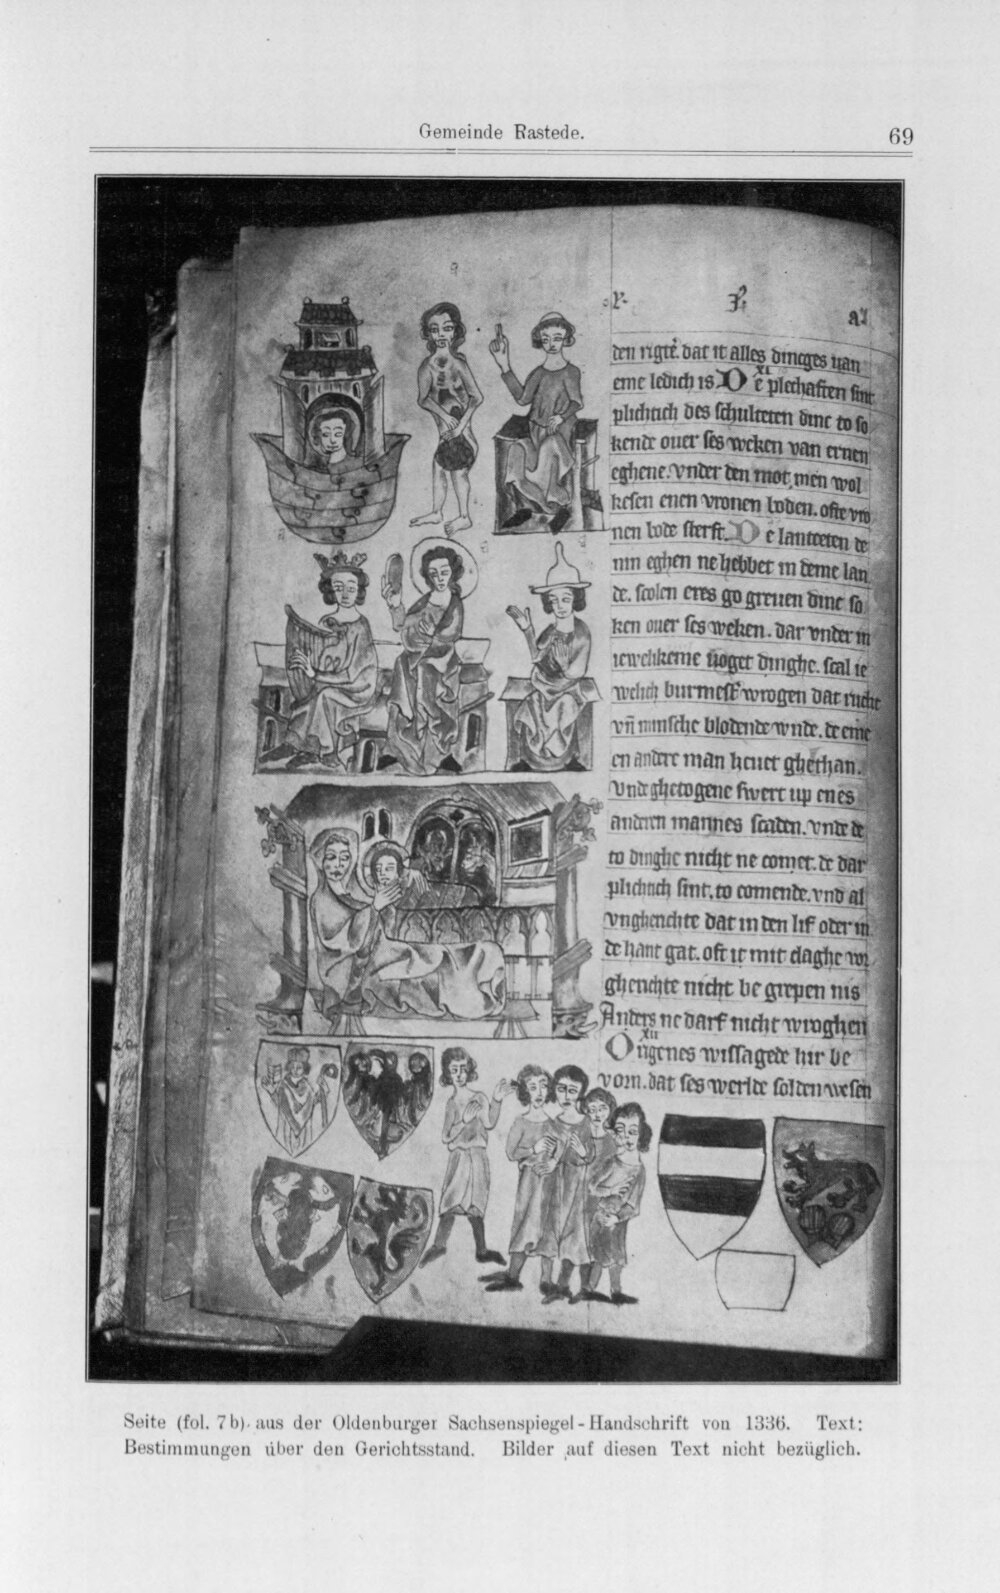 Gemeinde Rastede.
69
den rigte. dat it alles dinges van
eme ledich is De plechaften sint
XI
plichtich des schulteten dinc to so
kende ouer ses weken van ernen
eghene. vnder den mot men wol
kesen enen vronen boden. ofte vro
nen bode sterft. De lantceten de
nin eghen ne hebbet in deme lan
de. scolen eres go greuen dinc so
ken ouer ses weken. dar vnder in
iewelikeme uoget dinghe. scal ie
welich burmest' wrogen dat rucht
vn̄ minsche blodende wnde. de eme
en andere man heuet ghethan.
vnde ghetogene swert up enes
anderen mannes scaden. vnde de
to dinghe nicht ne comet. de dar
plichtich sint. to comende. vnd al
vngherichte dat in den lif oder in
de hant gat. oft it mit claghe vor
gherichte nicht be grepen nis
Anders ne darf nicht wroghen
XII
Origenes wissagede hir be
vorn. dat ses werlde solden wesen
Seite (fol. 7b) aus der Oldenburger Sachsenspiegel-Handschrift von 1336. Text:
Bestimmungen über den Gerichtsstand. Bilder auf diesen Text nicht bezüglich.